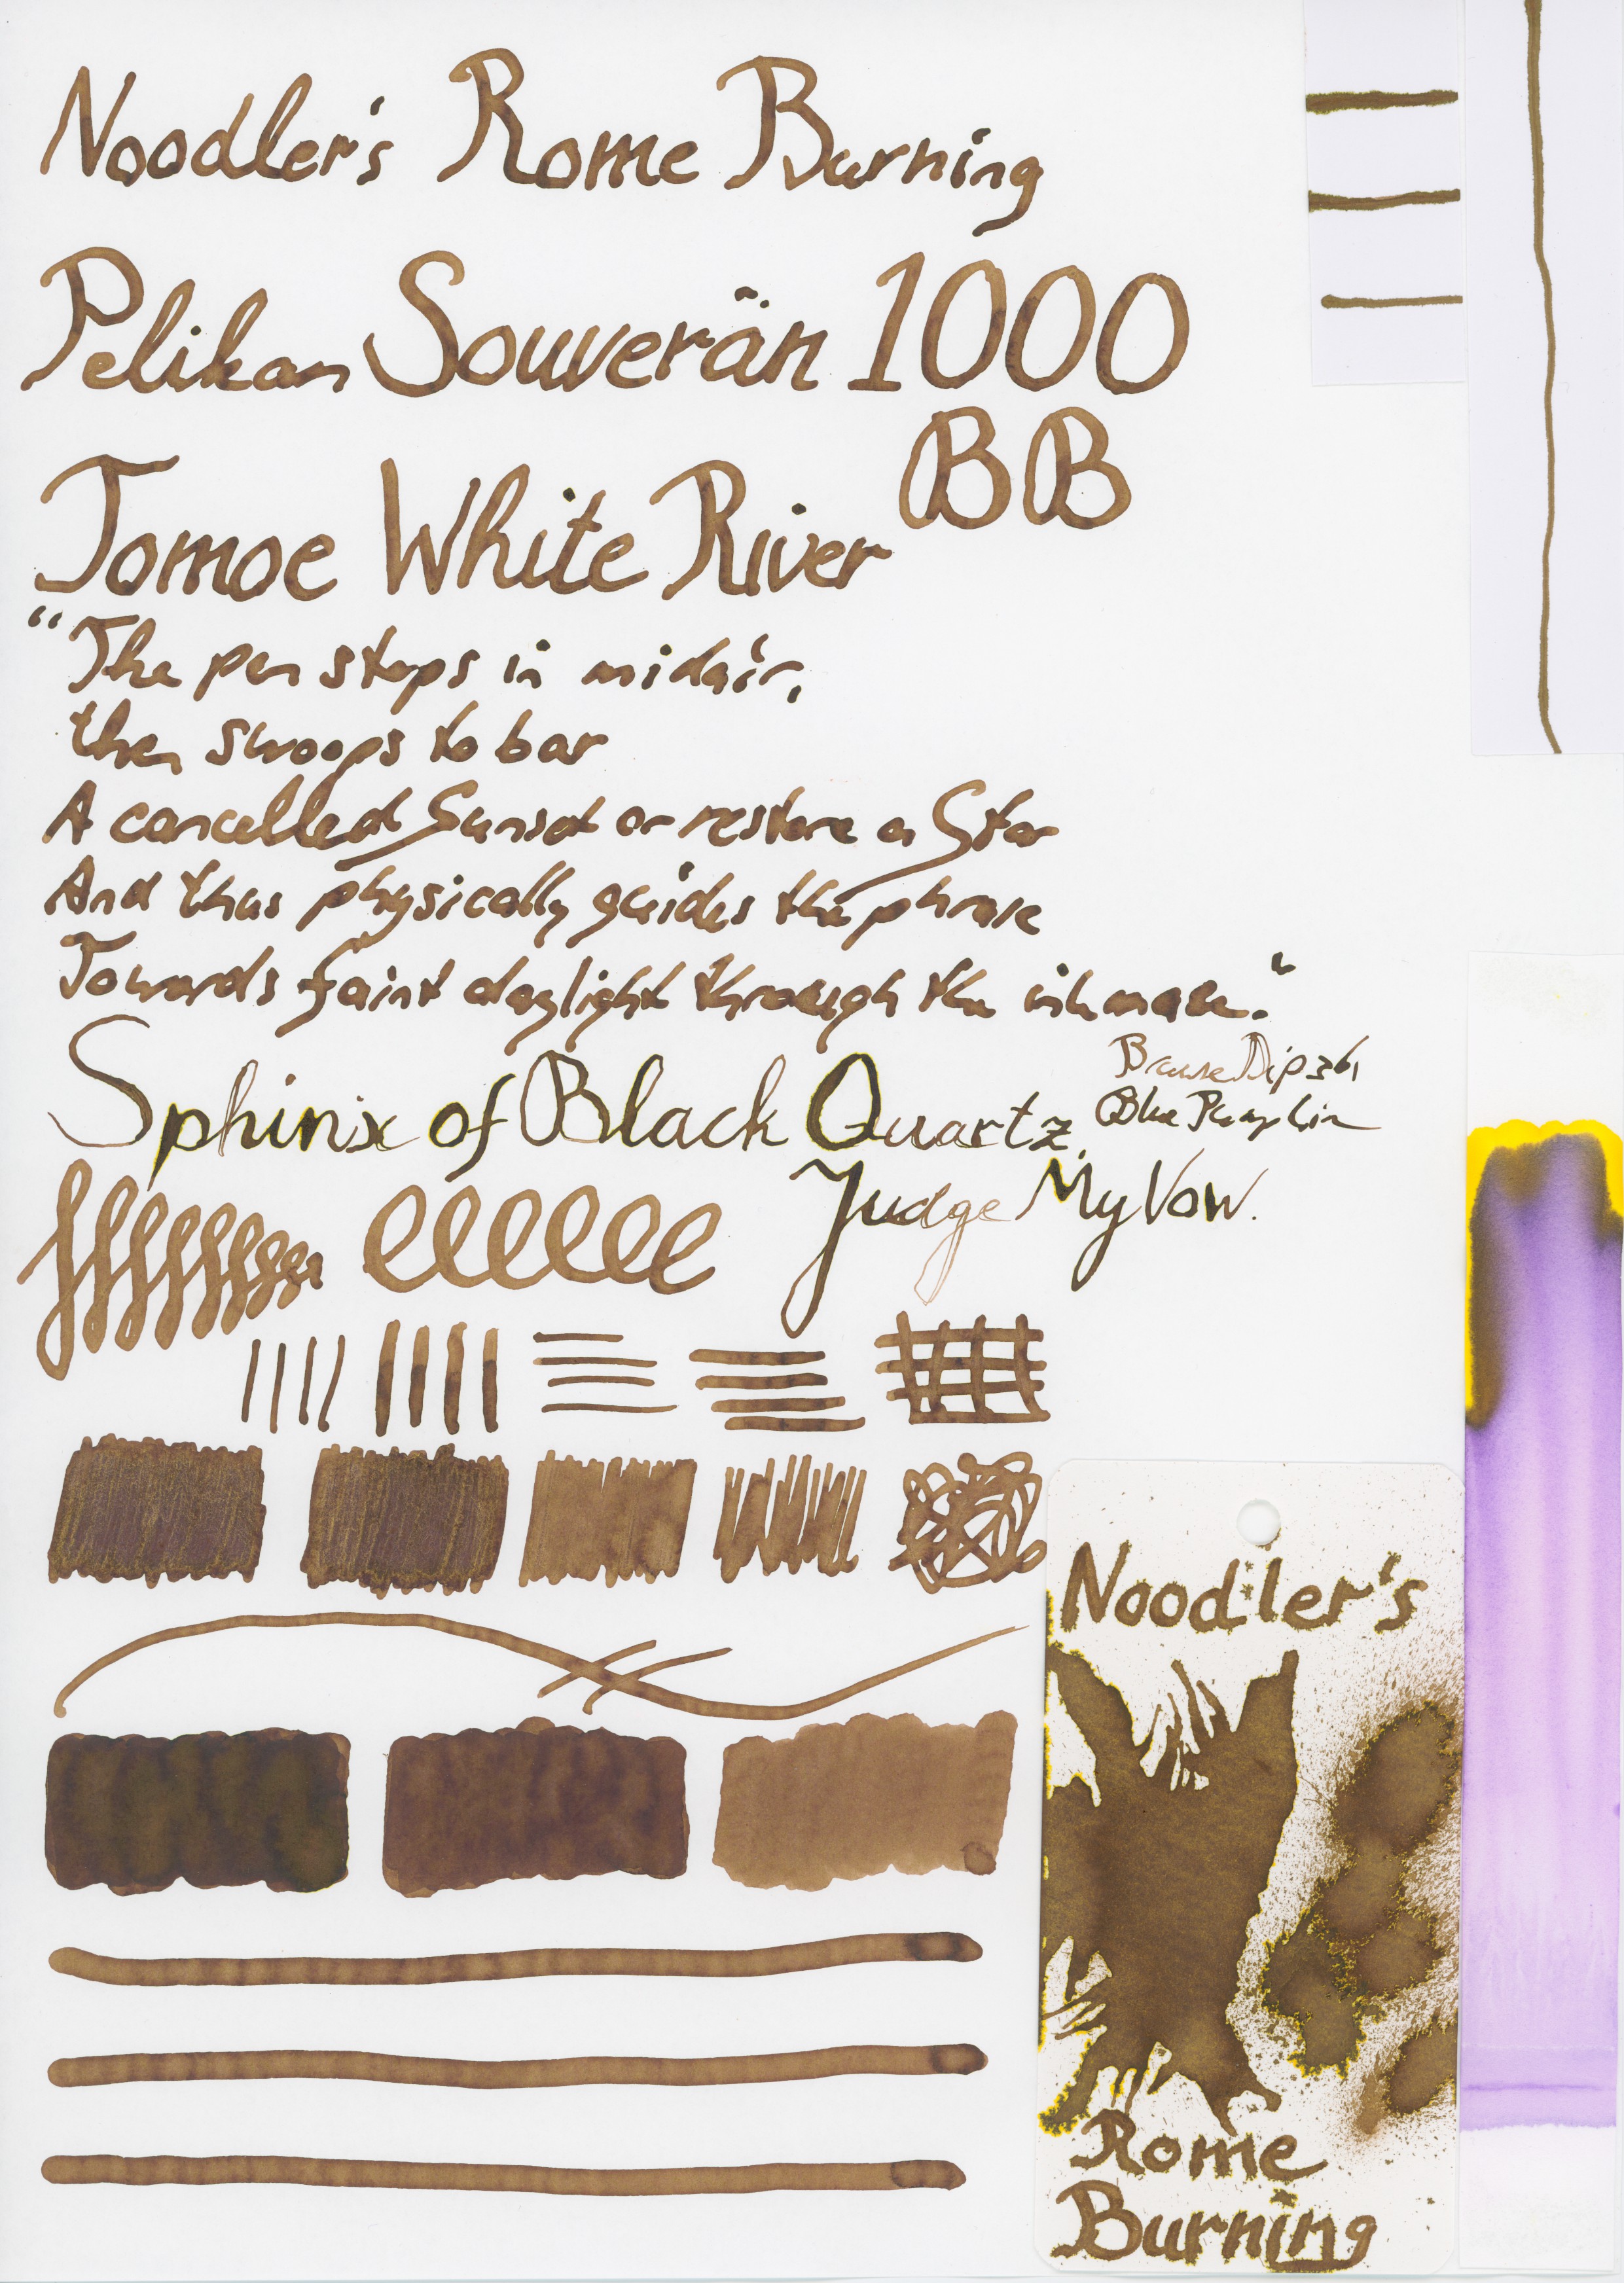 Noodler's Rome Burning
Pelikan Souverän 1000
BB
Tomoe White River
“The pen stops in midair,
then swoops to bar
A cancelled Sunset or restore a Star
And thus physically guides the phrase
Towards faint daylight through the ink maze.”
Brause Dip 361
Blue Pumpkin
Sphinx of Black Quartz
Judge My Vow.
Noodler's
Rome
Burning